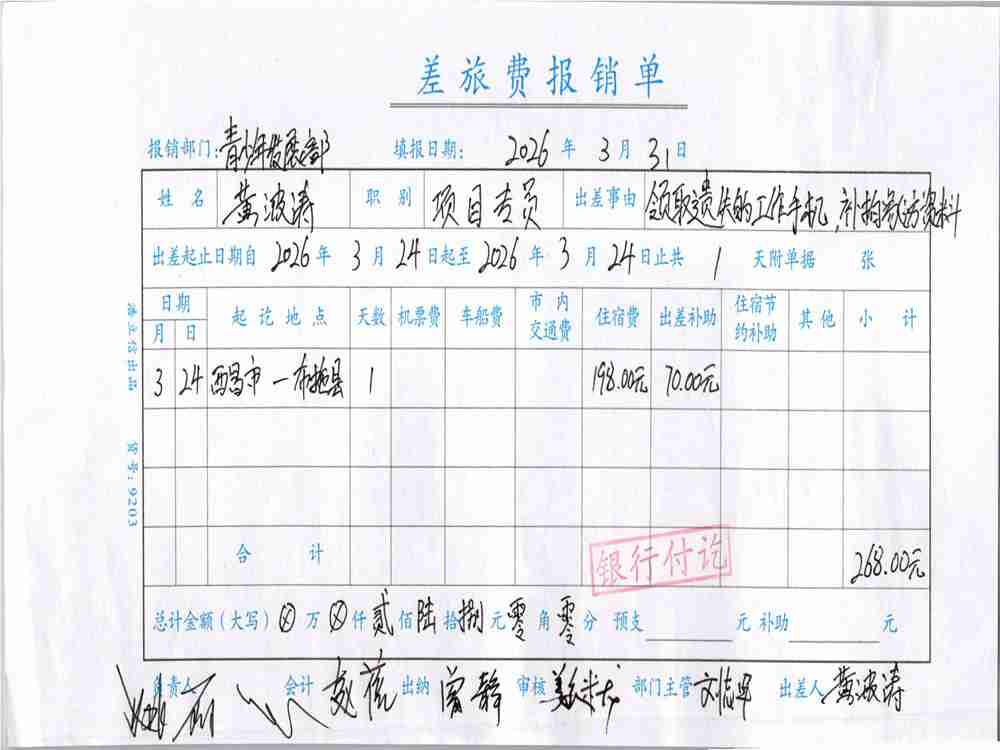 差旅费报销单
报销部门：青少年发展部 填报日期： 2026 年 3 月 31 日
姓名 黄波涛 职别 项目专员 出差事由 领取遗失的工作手机，补拍家访资料
出差起止日期自 2026 年 3 月 24 日起至 2026 年 3 月 24 日止共 1 天附单据 张
日期 起讫地点 天数 机票费 车船费 市内交通费 住宿费 出差补助 住宿节约补助 其他 小计
月 日
3 24 西昌市—布拖县 1 198.00元 70.00元
合计 268.00元
银行付讫
总计金额（大写）⊗ 万 ⊗ 仟 贰 佰 陆 拾 捌 元 零 角 零 分 预支 元 补助 元
负责人 会计 出纳 曾静 审核 部门主管 出差人 黄波涛
立信出品 货号：9203